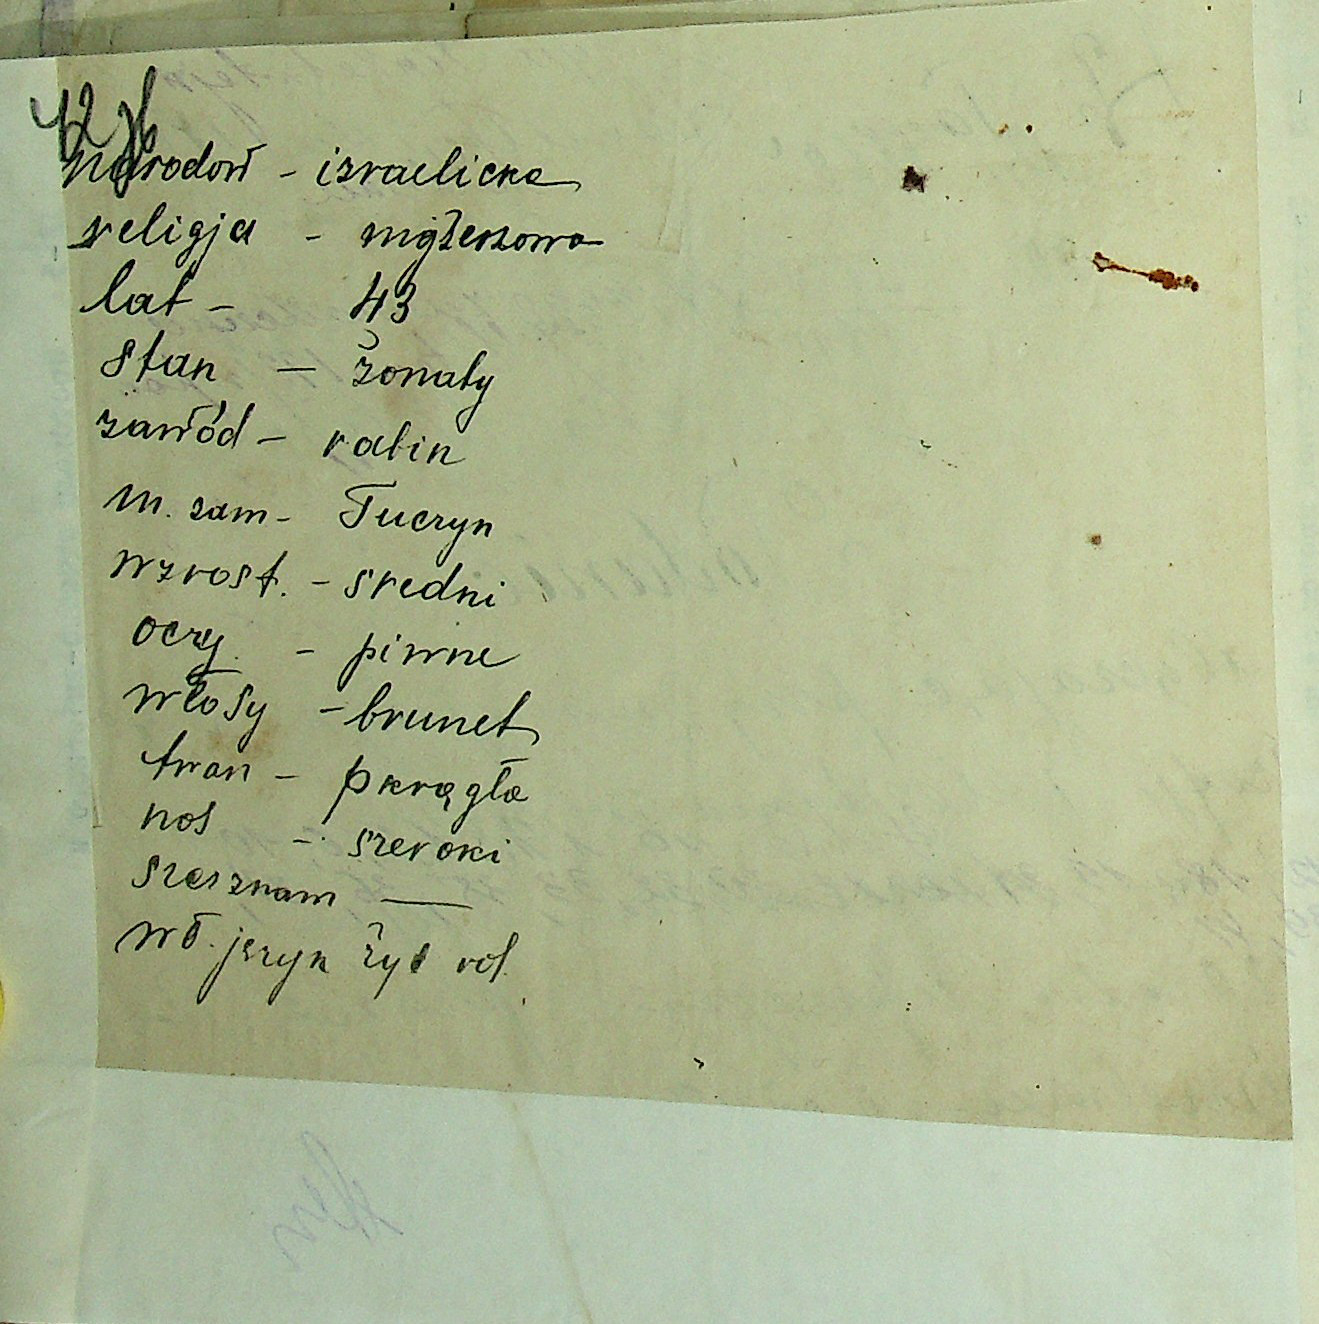 42
narodow - izraelicka
religja - mojżeszowa
lat - 43
stan - żonaty
zawód - rabin
m. zam - Tuczyn
wzrost. - sredni
oczy - piwne
włosy - brunet
twarz - okrągła
nos - szeroki
szcz znam —
wł. język żyd ros.